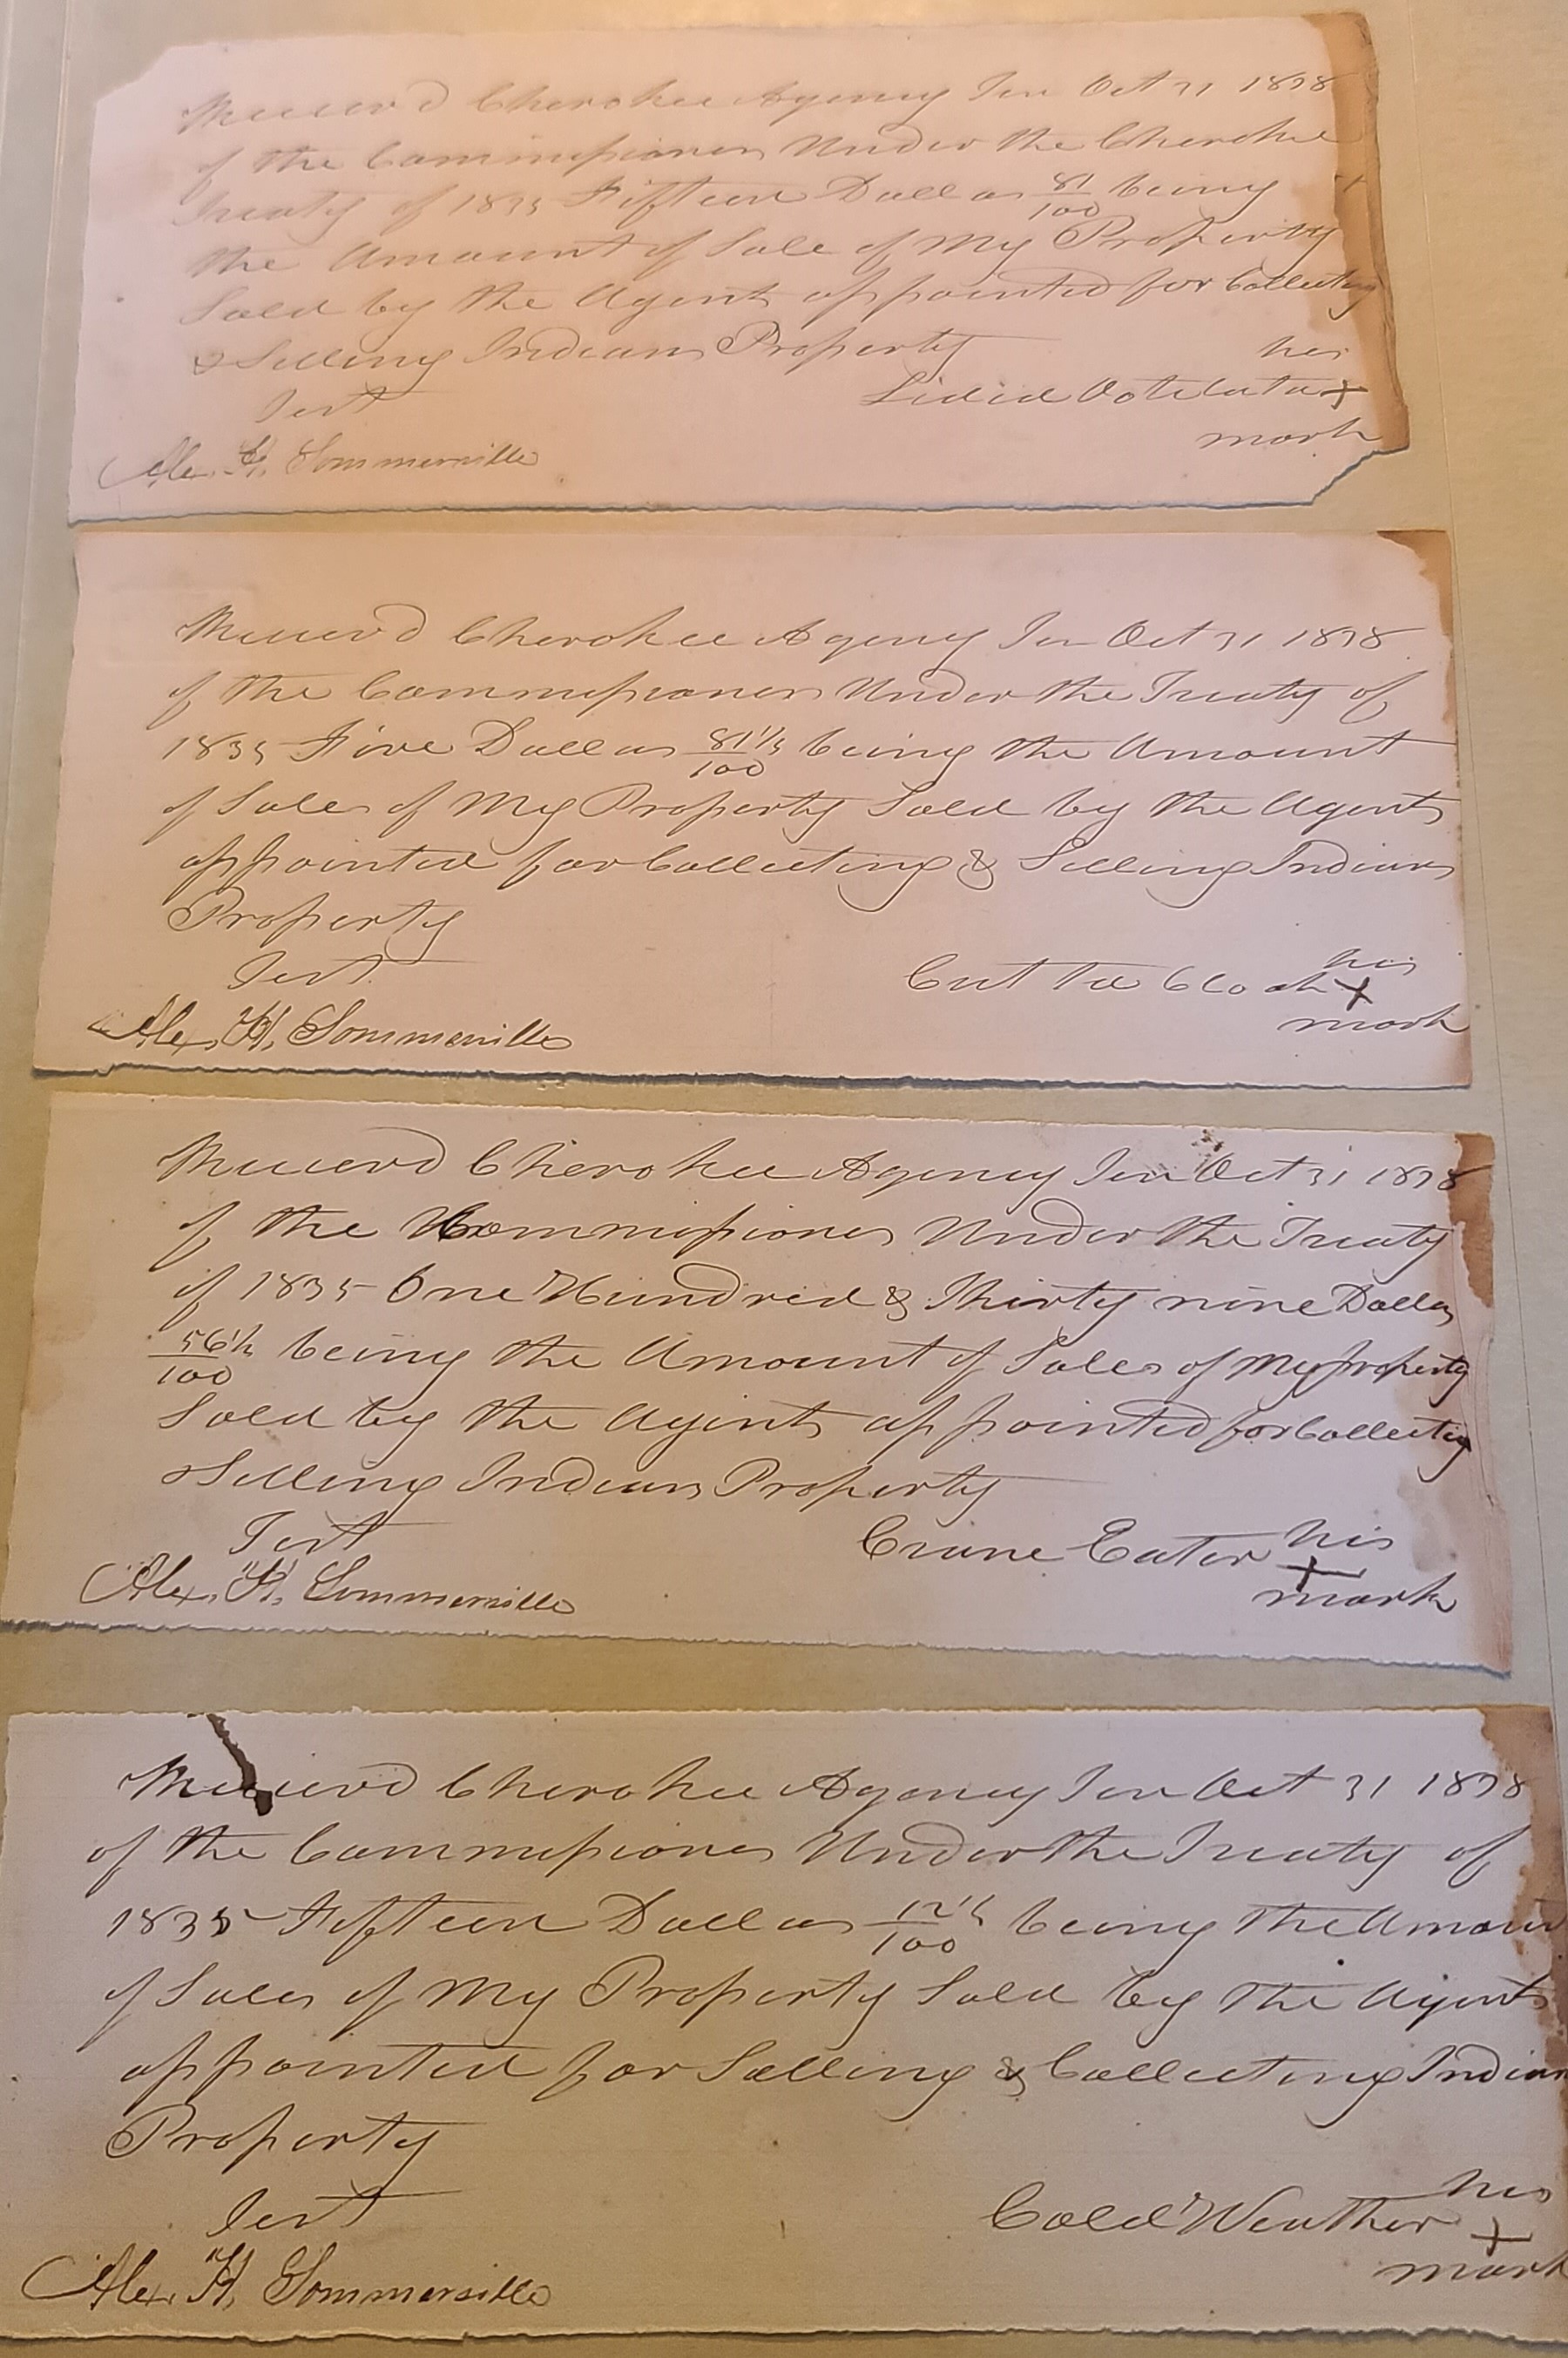 Received Cherokee Agency Ten Oct 31 1838
of the Commissioners Under the Cherokee
Treaty of 1835 Fifteen Dollars 81/100 being
the Amount of Sale of My Property
Sold by the Agents appointed for Collecting
& Selling Indians Property
his
Test
x
mark
Alex. H. Sommerville
Received Cherokee Agency Ten Oct 31 1838
of the Commissioners Under the Treaty of
1835 Five Dollars 81 1/2/100 being the Amount
of Sales of My Property Sold by the Agents
appointed for Collecting & Selling Indians
Property
his
Test
x
mark
Alex. H. Sommerville
Received Cherokee Agency Ten Oct 31 1838
of the Commissioners Under the Treaty
of 1835 One Hundred & Thirty nine Dollars
56 1/2/100 being the Amount of Sales of My Property
Sold by the Agents appointed for Collecting
& Selling Indians Property
Test
Crane Eater his
x
mark
Alex. H. Sommerville
Received Cherokee Agency Ten Oct 31 1838
of the Commissioners Under the Treaty of
1835 Fifteen Dollars 12 1/2/100 being The Amoun
of Sales of My Property Sold by the Agents
appointed for Selling & Collecting Indian
Property
his
Test
Cold Weather x
mark
Alex. H. Sommerville